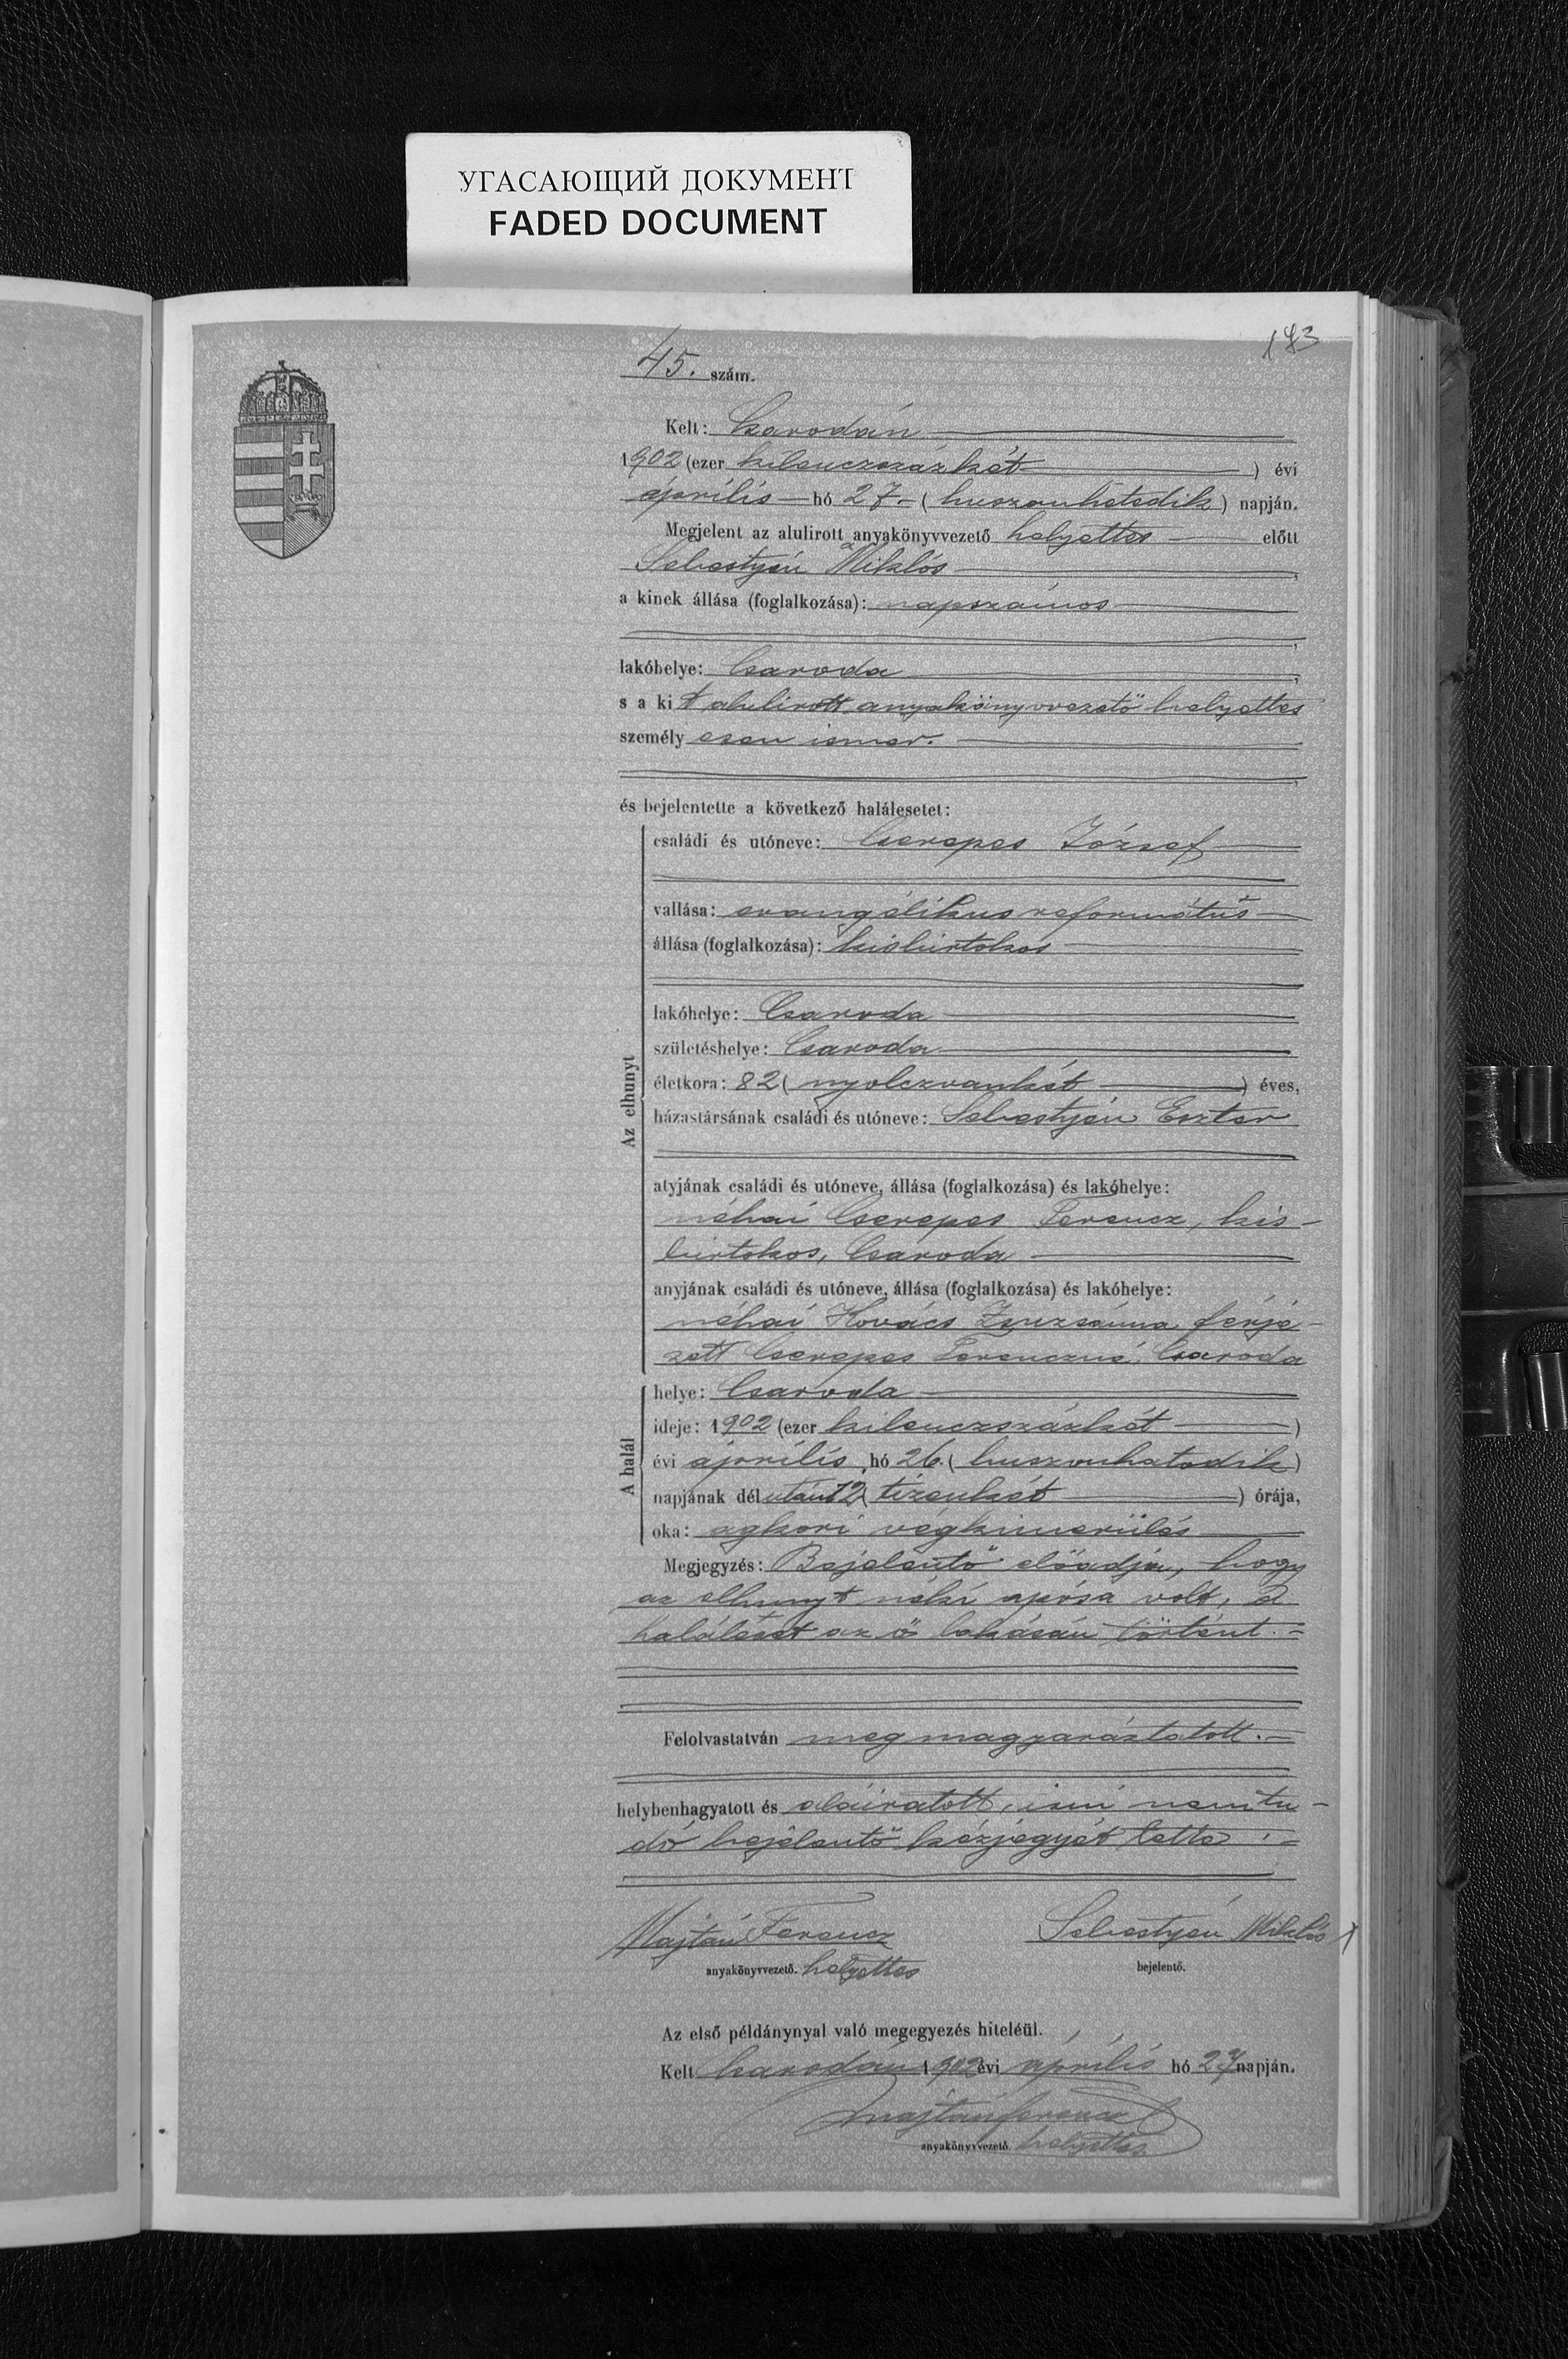 УГАСАЮЩИЙ ДОКУМЕНТ
FADED DOCUMENT
45. szám.
Kelt: Csarodán
1902 (ezer kilenczszázkét) évi
április hó 27. (huszonhetedik) napján.
Megjelent az alulirott anyakönyvvezető helyettes előtt
Sebestyén Miklós
a kinek állása (foglalkozása): napszámos
lakóhelye: Csaroda
s a kit alulirott anyakönyvvezető helyettes
személyesen ismer.
és bejelentette a következő halálesetet:
Az elhunyt
családi és utóneve: Cserepes József
vallása: evangélikus református
állása (foglalkozása): kisbirtokos
lakóhelye: Csaroda
születéshelye: Csaroda
életkora: 82 (nyolczvankét) éves,
házastársának családi és utóneve: Sebestyén Eszter
atyjának családi és utóneve, állása (foglalkozása) és lakóhelye:
néhai Cserepes Ferencz, kis-
birtokos, Csaroda
anyjának családi és utóneve, állása (foglalkozása) és lakóhelye:
néhai Kovács Zsuzsánna férje-
zett Cserepes Ferenczné, Csaroda
A halál
helye: Csaroda
ideje: 1902 (ezer kilenczszázkét)
évi április hó 26. (huszonhatodik)
napjának délután 12 (tizenkét) órája,
oka: agkori végkimerülés
Megjegyzés: Bejelentő előadja, hogy
az elhunyt néki apósa volt, a
haláleset az ő lakásán történt.
Felolvastatván megmagyaráztatott.
helybenhagyatott és aláiratott, irni nem tu-
dó bejelentő kézjegyét tette.
Majtán Ferencz
Sebestyén Miklós x
anyakönyvvezető. helyettes
bejelentő.
Az első példánynyal való megegyezés hiteléül.
Kelt Csarodán 1902 évi április hó 27 napján.
Majtán Ferencz
anyakönyvvezető. helyettes